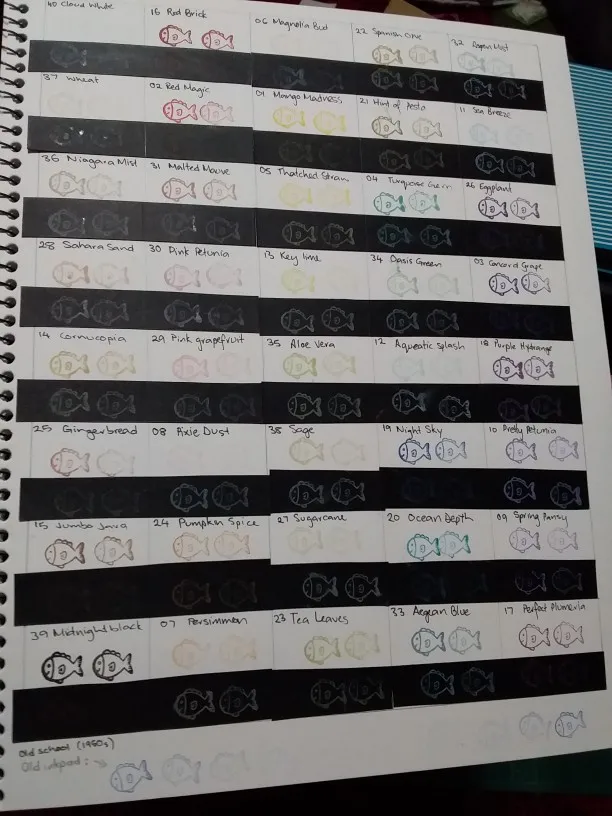 40 Cloud White
16 Red Brick
06 Magnolia Bud
22 Spanish Olive
32 Aegean Mist
37 Wheat
02 Red Magic
01 Mango Madness
21 Hint of Pesto
11 Sea Breeze
36 Niagara Mist
31 Malted Mauve
05 Thatched Straw
04 Turquoise Gem
26 Eggplant
28 Sahara Sand
30 Pink Petunia
13 Key lime
34 Oasis Green
03 Concord Grape
14 Cornucopia
29 Pink grapefruit
35 Aloe Vera
12 Aquatic Splash
18 Purple Hydrange
25 Gingerbread
08 Pixie Dust
38 Sage
19 Night Sky
10 Pretty Petunia
15 Jumbo Java
24 Pumpkin Spice
27 Sugarcane
20 Ocean Depth
09 Spring Pansy
39 Midnight black
07 Persimmon
23 Tea Leaves
33 Aegean Blue
17 Perfect Plumeria
Old school (1980s)
Old inkpad :